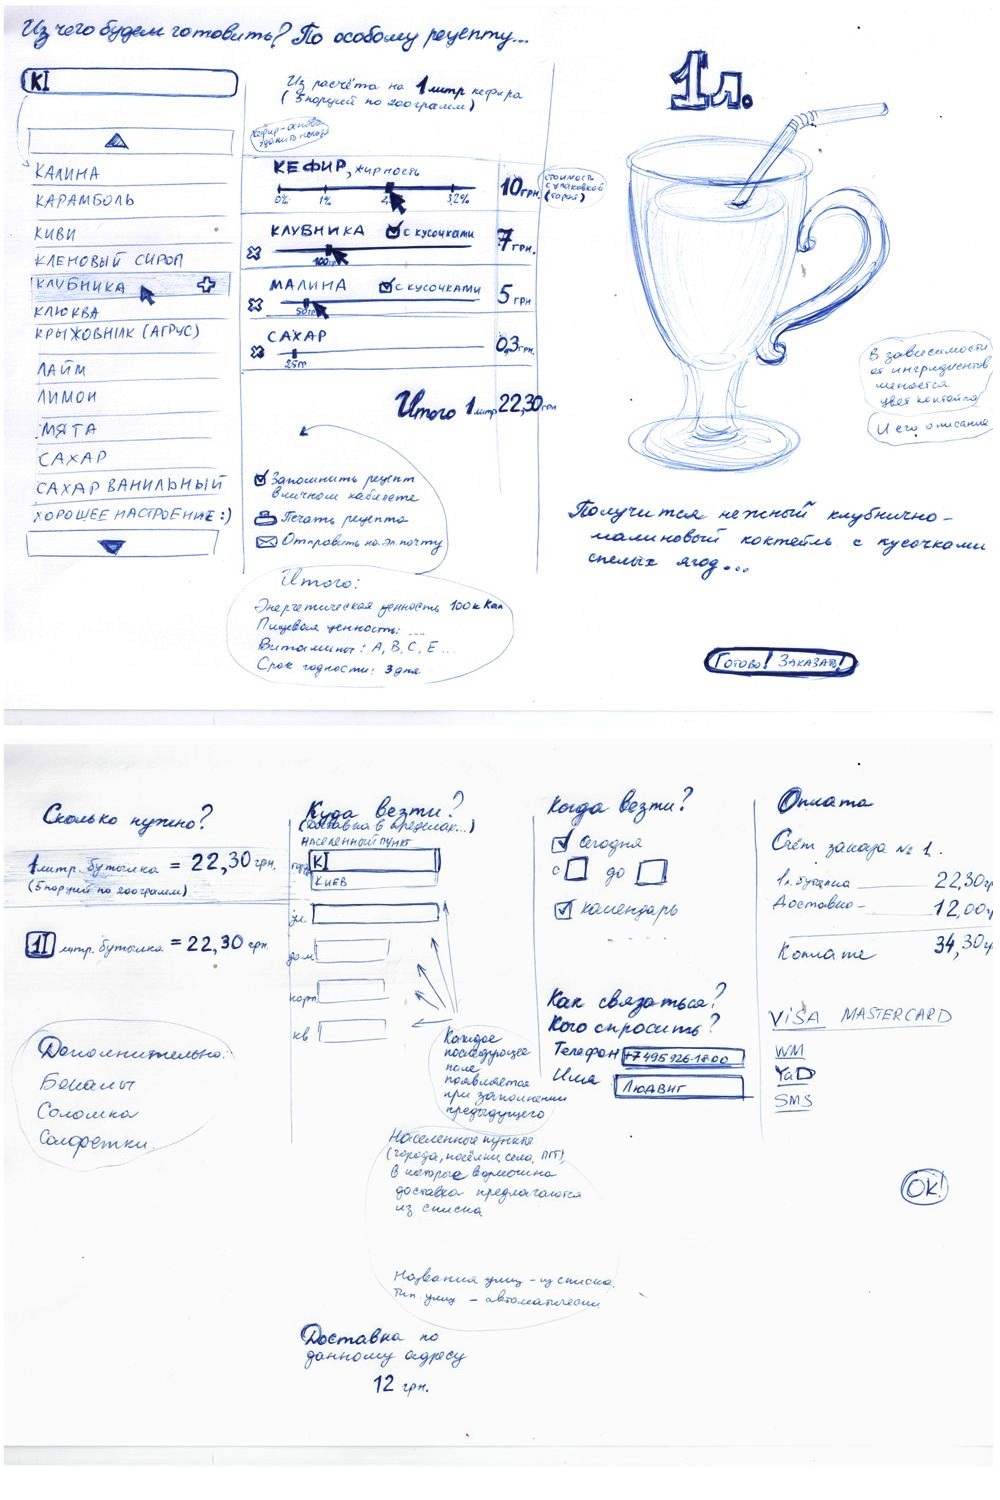 Из чего будем готовить? По особому рецепту...
КI
Из расчёта на 1 литр кефира
(5 порций по 200 грамм)
Кефир-основа
удалить нельзя
КАЛИНА
КАРАМБОЛЬ
КИВИ
КЛЕНОВЫЙ СИРОП
КЛУБНИКА
КЛЮКВА
КРЫЖОВНИК (АГРУС)
ЛАЙМ
ЛИМОН
МЯТА
САХАР
САХАР ВАНИЛЬНЫЙ
ХОРОШЕЕ НАСТРОЕНИЕ :)
КЕФИР, жирность
0% 1% 2, 3,2%
10 грн.
стоимость
с упаковкой
(тарой)
КЛУБНИКА с кусочками
100гр
7 грн.
МАЛИНА с кусочками
50гр
5 грн
САХАР
25гр
0,3 грн.
Итого 1 литр 22,30 грн
Запомнить рецепт
в личном кабинете
Печать рецепта
Отправить на эл. почту
Итого:
Энергетическая ценность 100 кКал
Пищевая ценность: ...
Витамины: А, В, С, Е...
Срок годности: 3 дня
1л.
В зависимости
от ингридиентов
меняется
цвет коктейля
И его описание
Получится нежный клубнично-
малиновый коктейль с кусочками
спелых ягод...
Готово! Заказать!
Сколько нужно?
1 литр. бутылка = 22,30 грн.
(5 порций по 200 грамм)
1I литр. бутылка = 22,30 грн.
Дополнительно:
Бокалы
Соломка
Салфетки
Куда везти?
(доставка в пределах...)
населенный пункт
город КI
КИЕВ
ул.
дом
корп
кв
Каждое
последующее
поле
появляется
при заполнении
предыдущего
Населенные пункты
(города, посёлки, села, ПГТ)
в которые возможна
доставка предлагаются
из списка
Названия улиц - из списка.
Тип улиц - автоматически
Доставка по
данному адресу
12 грн.
Когда везти?
Сегодня
с до
календарь
Как связаться?
Кого спросить?
Телефон +7 495 926-18-00
Имя Людвиг
Оплата
Счёт заказа № 1.
1л. бутылка 22,30 гр
Доставка 12,00 гр
К оплате 34,30 гр
VISA MASTERCARD
WM
YaD
SMS
OK!